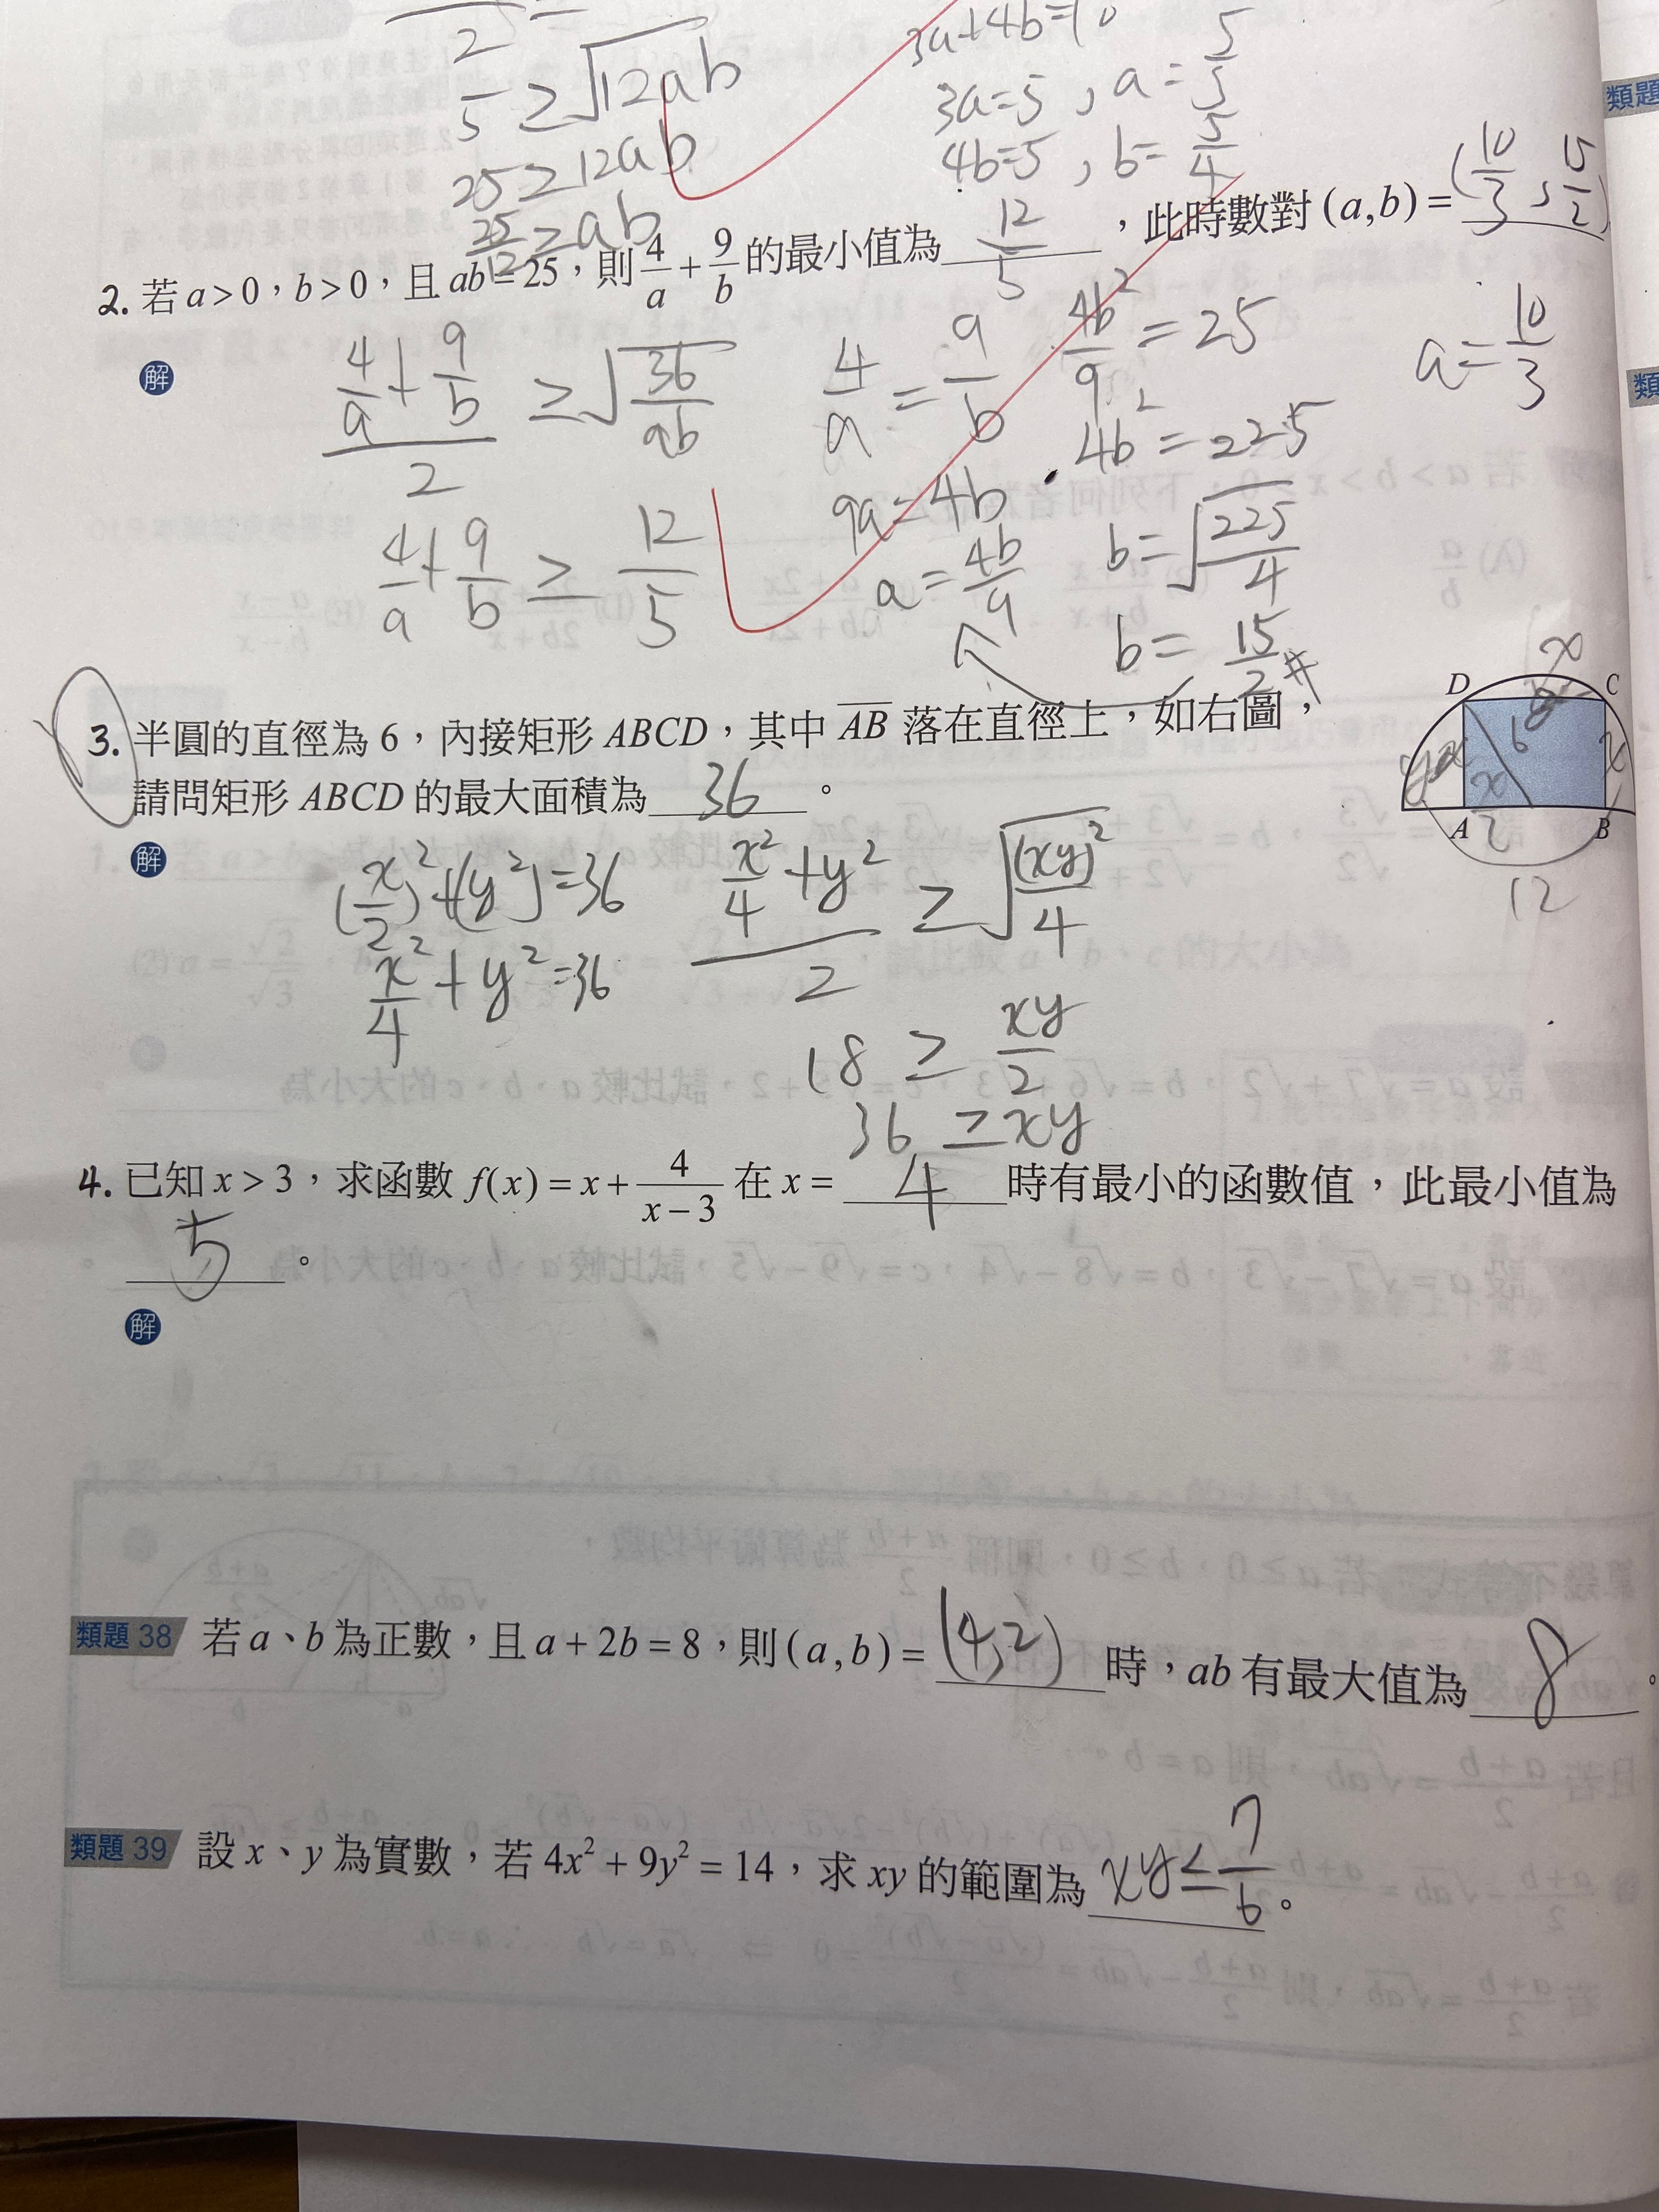 2
5 ≥ √12ab
25 ≥ 12ab
25/12 ≥ ab
3a+4b=10
3a=5，a=5/3
4b=5，b=5/4
類題
2. 若 a > 0，b > 0，且 ab = 25，則 4/a + 9/b 的最小值為 12/5，此時數對 (a,b) = (10/3, 15/2)
解
(4/a + 9/b)/2 ≥ √(36/ab)
4/a + 9/b ≥ 12/5
4/a = 9/b
9a = 4b
a = 4b/9
4b²/9 = 25
4b² = 225
b = √(225/4)
b = 15/2 #
a = 10/3
3. 半圓的直徑為 6，內接矩形 ABCD，其中 AB 落在直徑上，如右圖，
請問矩形 ABCD 的最大面積為 36。
D C
A B
x
6
x/2
12
解
(x/2)²+(y²)=36
x²/4 + y² = 36
(x²/4 + y²)/2 ≥ √((xy)²/4)
18 ≥ xy/2
36 ≥ xy
4. 已知 x > 3，求函數 f(x) = x + 4/(x−3) 在 x = 4 時有最小的函數值，此最小值為
5。
解
類題 38 若 a、b 為正數，且 a + 2b = 8，則 (a,b) = (4,2) 時，ab 有最大值為 8。
類題 39 設 x、y 為實數，若 4x² + 9y² = 14，求 xy 的範圍為 xy ≤ 7/6。